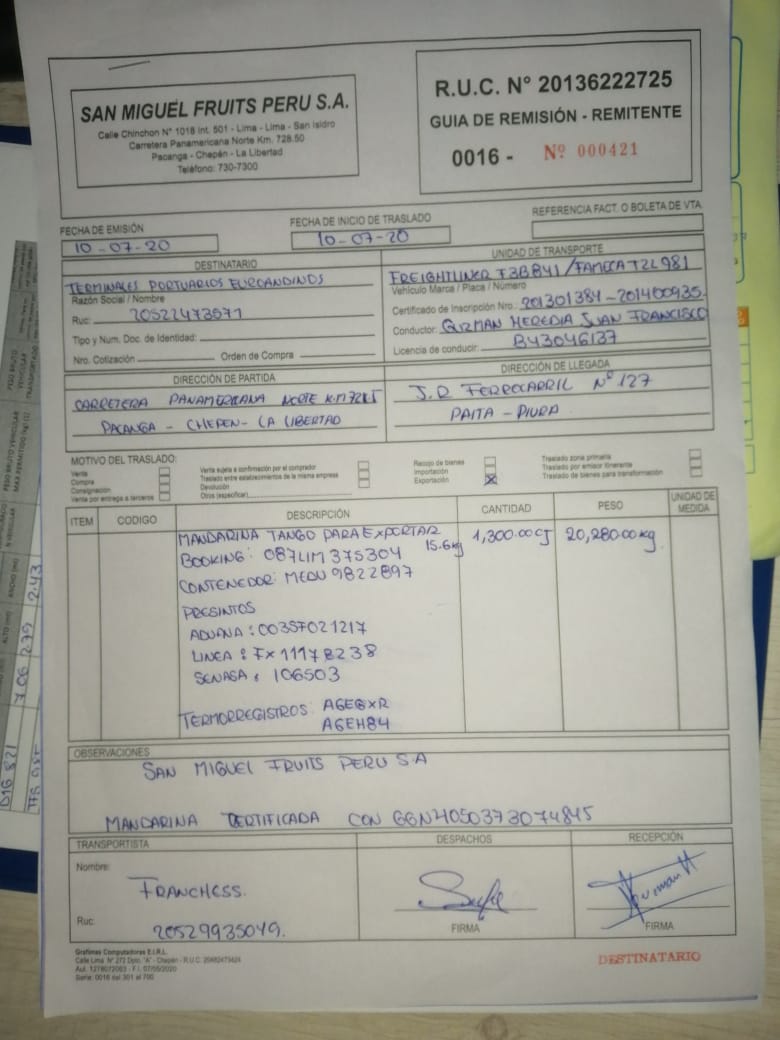 SAN MIGUEL FRUITS PERU S.A.
Calle Chinchon N° 1018 Int. 501 - Lima - Lima - San Isidro
Carretera Panamericana Norte Km. 728.50
Pacanga - Chepén - La Libertad
Teléfono: 730-7300
R.U.C. N° 20136222725
GUIA DE REMISIÓN - REMITENTE
0016 - Nº 000421
FECHA DE EMISIÓN
10-07-20
FECHA DE INICIO DE TRASLADO
10-07-20
REFERENCIA FACT. O BOLETA DE VTA.
DESTINATARIO
TERMINALES PORTUARIOS EUROANDINOS
Razón Social / Nombre
Ruc: 20522473571
Tipo y Num. Doc. de Identidad:
Nro. Cotización Orden de Compra
UNIDAD DE TRANSPORTE
FREIGHTLINER T3B841/FAMECA T2L981
Vehículo Marca / Placa / Número
Certificado de Inscripción Nro.: 201301384-201400935.
Conductor: GUZMAN HEREDIA JUAN FRANCISCO
Licencia de conducir: B43046137
DIRECCIÓN DE PARTIDA
CARRETERA PANAMERICANA NORTE
PACANGA - CHEPEN - LA LIBERTAD
DIRECCIÓN DE LLEGADA
J.R FERROCARRIL Nº 127
PAITA - PIURA
MOTIVO DEL TRASLADO:
Venta
Compra
Consignación
Venta por entrega a terceros
Venta sujeta a confirmación por el comprador
Traslado entre establecimientos de la misma empresa
Devolución
Otros (especificar)
Recojo de bienes
Importación
Exportación X
Traslado zona primaria
Traslado por emisor itinerante
Traslado de bienes para transformación
ITEM CODIGO DESCRIPCIÓN CANTIDAD PESO UNIDAD DE MEDIDA
MANDARINA TANGO PARA EXPORTAR 15.6kg 1,300.00CJ 20,280.00kg
BOOKING: 087LIM375304
CONTENEDOR: MEDU 9822897
PRESINTOS
ADUANA: 0035F021217
LINEA: FX11178238
SENASA: 106503
TERMORREGISTROS: AGEGXR
AGEH84
OBSERVACIONES
SAN MIGUEL FRUITS PERU S.A
MANDARINA CERTIFICADA CON GGN4050373074845
TRANSPORTISTA
Nombre: FRANCHESS.
Ruc: 20529935049.
DESPACHOS
FIRMA
RECEPCIÓN
FIRMA
Grafimas Computadoras E.I.R.L.
Calle Lima N° 272 Dpto. "A" - Chepén - R.U.C. 20482473424
Aut. 1278072063 - F.I. 07/05/2020
Serie: 0016 del 301 al 700
DESTINATARIO